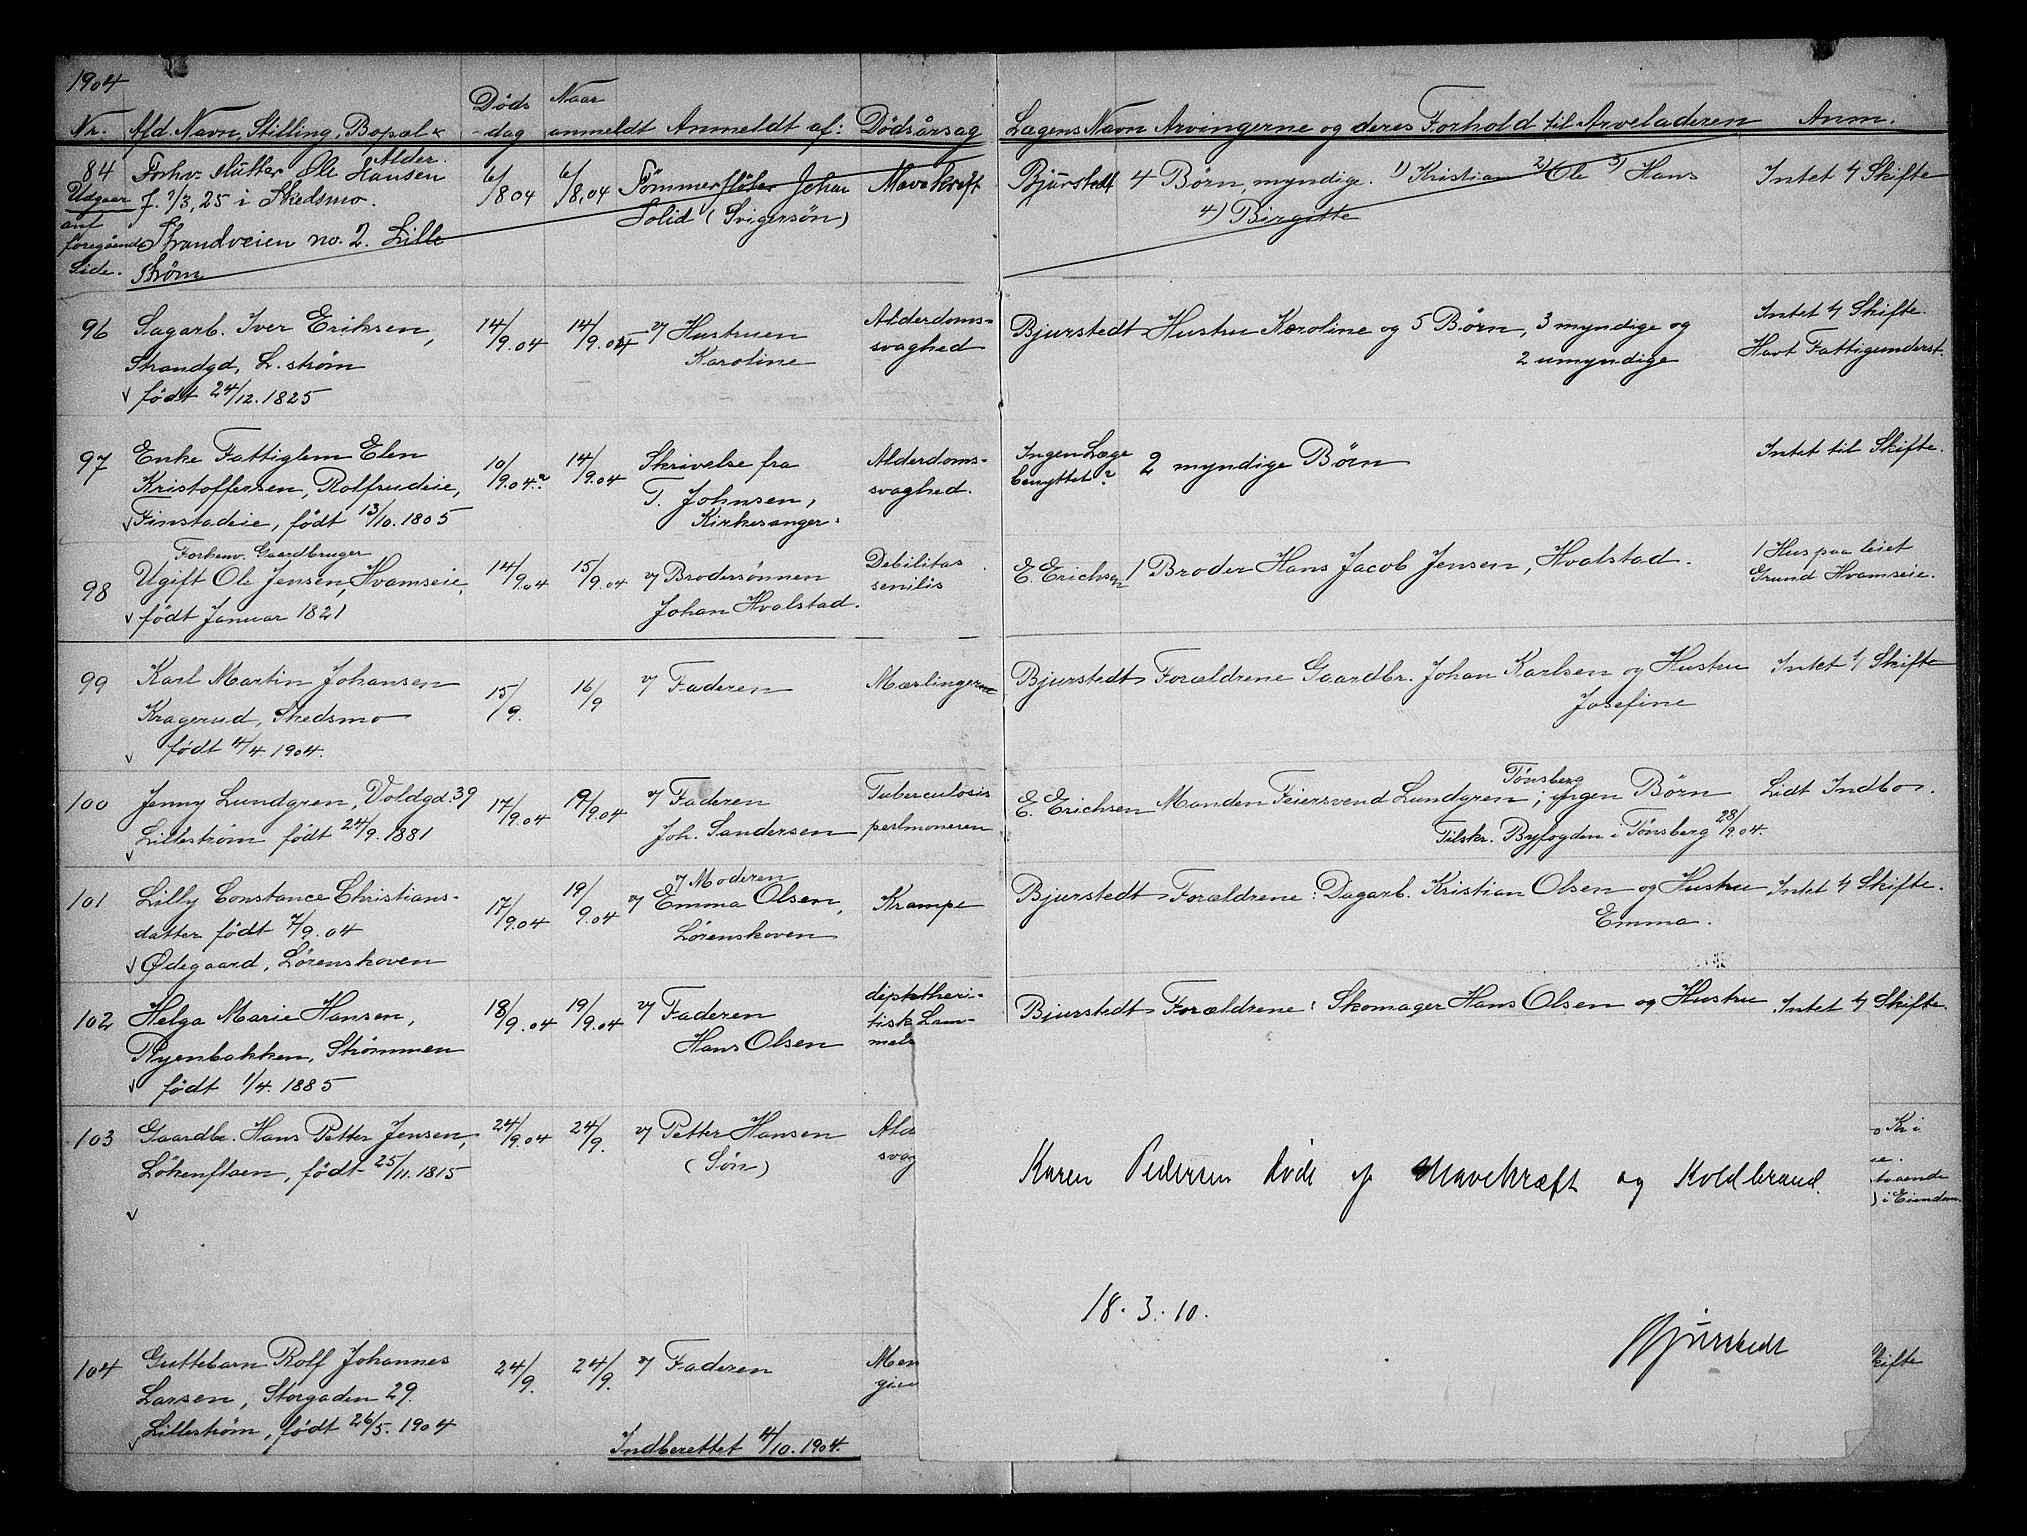 1904
Nr. Afd. Navn, Stilling, Bopæl & Alder. Døds-dag Naar anmeldt Anmeldt af: Dödsårsag Lægens Navn Arvingerne og deres Forhold til Arveladeren Anm.
84 Forhv. Slutter Ole Hansen 6/8 04 6/8,04 Tömmerfløter Johan Mavekræft Bjurstedt 4 Börn, myndige. 1) Kristian 2) Ole 3) Hans Intet t/ Skifte
Udgaar f. 7/3,25 i Skedsmo. Solid (Svigersön) 4) Birgitte
anf Strandveien no. 2. Lille
foregående Strøm
Side.
96 Sagarb. Iver Eriksen, 14/9.04 14/9.04 v/ Hustruen Alderdoms- Bjurstedt Hustru Karoline og 5 Børn, 3 myndige og Intet t/ Skifte.
Strandgd, L.strøm Karoline svaghed 2 umyndige Havt Fattigunderst.
født 24/12.1825
97 Enke Fattiglem Elen 10/9.04? 14/9.04 Skrivelse fra Alderdoms- Ingen Læge 2 myndige Börn Intet til Skifte.
Kristoffersen, Rolfsudeie, T. Johnsen, svaghed. benyttet?
Finstadeie, født 13/10.1805 Kirkesanger.
Forhenv. Gaardbruger
98 Ugift Ole Jensen, Hvamseie, 14/9.04 15/9.04 v/ Brodersønnen Debilitas E. Erichsen 1 Broder Hans Jacob Jensen, Hvalstad. 1 Hus paa leiet
født Januar 1821 Johan Hvalstad. senilis Grund Hvamseie.
99 Karl Martin Johansen 15/9. 16/9 v/ Faderen Mæslingerne Bjurstedt Forældrene Gaardbr. Johan Karlsen og Hustru Intet t/ Skifte
Kragerud, Skedsmo Josefine
født 4/4.1904.
100 Jenny Lundgren, Voldgd.39 17/9.04 19/9.04 v/ Faderen Tuberculosis E. Erichsen Manden Feiersvend Lundgren, Tønsberg; ingen Børn Lidt Indbo.
Lillestrøm født 24/9.1881 Joh. Sandersen pulmonum Tilskr. Byfogden i Tønsberg 28/9.04.
101 Lilly Constance Christians- 17/9.04 19/9.04 v/ Moderen Krampe Bjurstedt Forældrene: Dagarb. Kristian Olsen og Hustru Intet t/ Skifte.
datter født 7/9.04 v/ Emma Olsen, Emma.
Ødegaard, Lørenskoven Lørenskoven
102 Helga Marie Hansen, 18/9.04 19/9.04 v/ Faderen diphtheri- Bjurstedt Forældrene: Skomager Hans Olsen og Hustru Intet t/ Skifte.
Ryenbakken, Strømmen Hans Olsen tisk Lam-
født 1/4.1885 mels
103 Gaardbr. Hans Petter Jensen, 24/9.04 24/9. v/ Petter Hansen Ald Kr i
Lökenflaen, født 25/11.1815 (Søn) svag ne.
staaende
) i Eiendom.
Karen Pedersen døde af Mavekræft og Koldbrand.
18.3.10.
Bjurstedt
104 Guttebarn Rolf Johannes 24/9. 24/9. v/ Faderen Men Skifte
Larsen, Storgaden 29. gien
Lillestrøm, født 26/5.1904
Indberettet 4/10.1904.